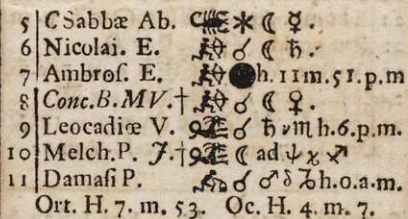 5 C Sabbæ Ab. ✶ ☾ ☿.
6 Nicolai. E. ♐ ☌ ☾ ♄.
7 Ambroſ. E. ♐ ☌ ● h. 11 m. 51. p. m
8 Conc. B. MV. † ♐ ☌ ☾ ♀.
9 Leocadiæ V. ☌ ♄ h. 6. p. m.
10 Melch. P. J. † ☾ ad ♐
11 Damaſi P. ☌ ♂ h. 0. a. m.
Ort. H. 7. m. 53. Oc. H. 4. m. 7.